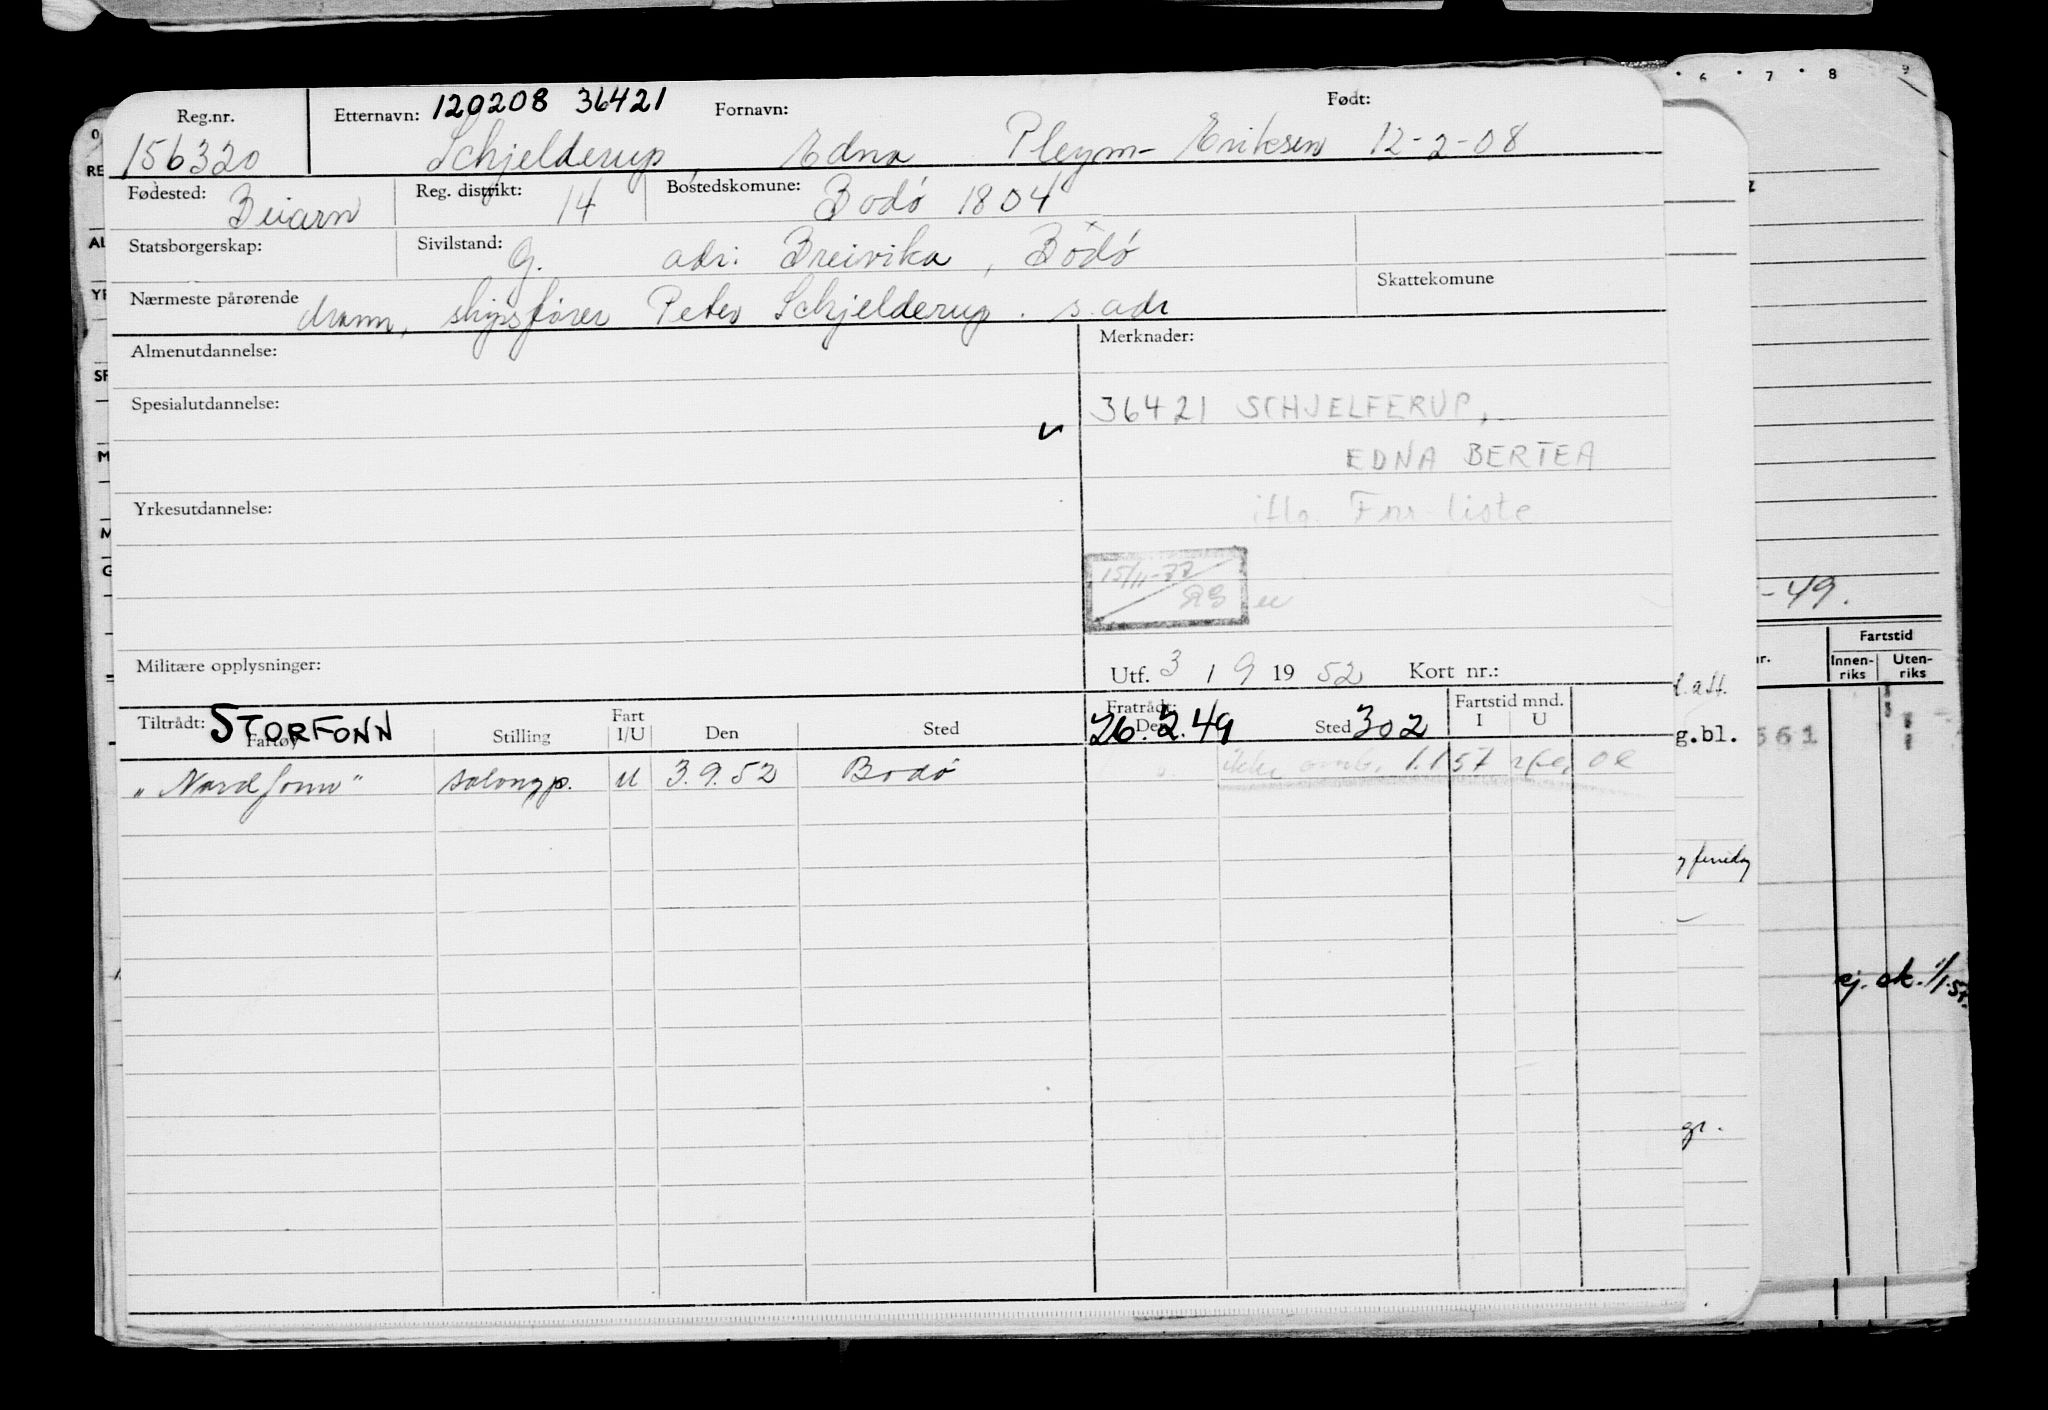 Reg.nr. Etternavn: 120208 36421 Fornavn: Født:
156320 Schjelderup Edna Pleym- Eriksen 12-2-08
Fødested: Beiarn Reg. distrikt: 14 Bostedskomune: Bodö 1804
Statsborgerskap: Sivilstand: G. adr. Breivika, Bodö
Skattekomune
Nærmeste pårørende skipsfører Peter Schjelderup. s. adr
Almenutdannelse: Merknader:
Spesialutdannelse: 36421 SCHJELFERUP,
EDNA BERTEA
Yrkesutdannelse: iflg. Fnr liste
15/11-77
Militære opplysninger: Utf. 3 / 9 19 52 Kort nr.:
Tiltrådt: STORFONN Fratrådt: Fartstid mnd.
Fartøy Stilling Fart I/U Den Sted 26.2.49 Den Sted 302 I U
"Nordfonn" salongp. U 3.9.52 Bodö ikke omb. 1.1 57
6 7 8 9
-49.
Fartstid
Innen-riks Uten-riks
561
g.bl.
gr.